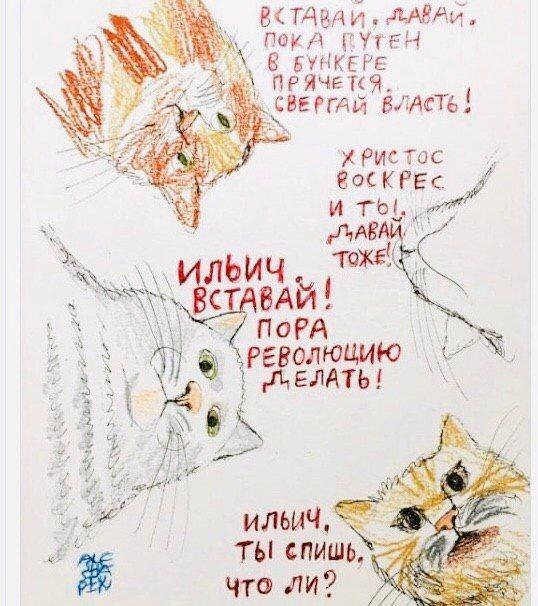 ВСТАВАЙ, ДАВАЙ,
ПОКА ПУТЕН
В БУНКЕРЕ
ПРЯЧЕТСЯ,
СВЕРГАЙ ВЛАСТЬ!
ХРИСТОС
ВОСКРЕС
И ТЫ,
ДАВАЙ
ТОЖЕ!
ИЛЬИЧ,
ВСТАВАЙ!
ПОРА
РЕВОЛЮЦИЮ
ДЕЛАТЬ!
ИЛЬИЧ,
ТЫ СПИШЬ,
ЧТО ЛИ?